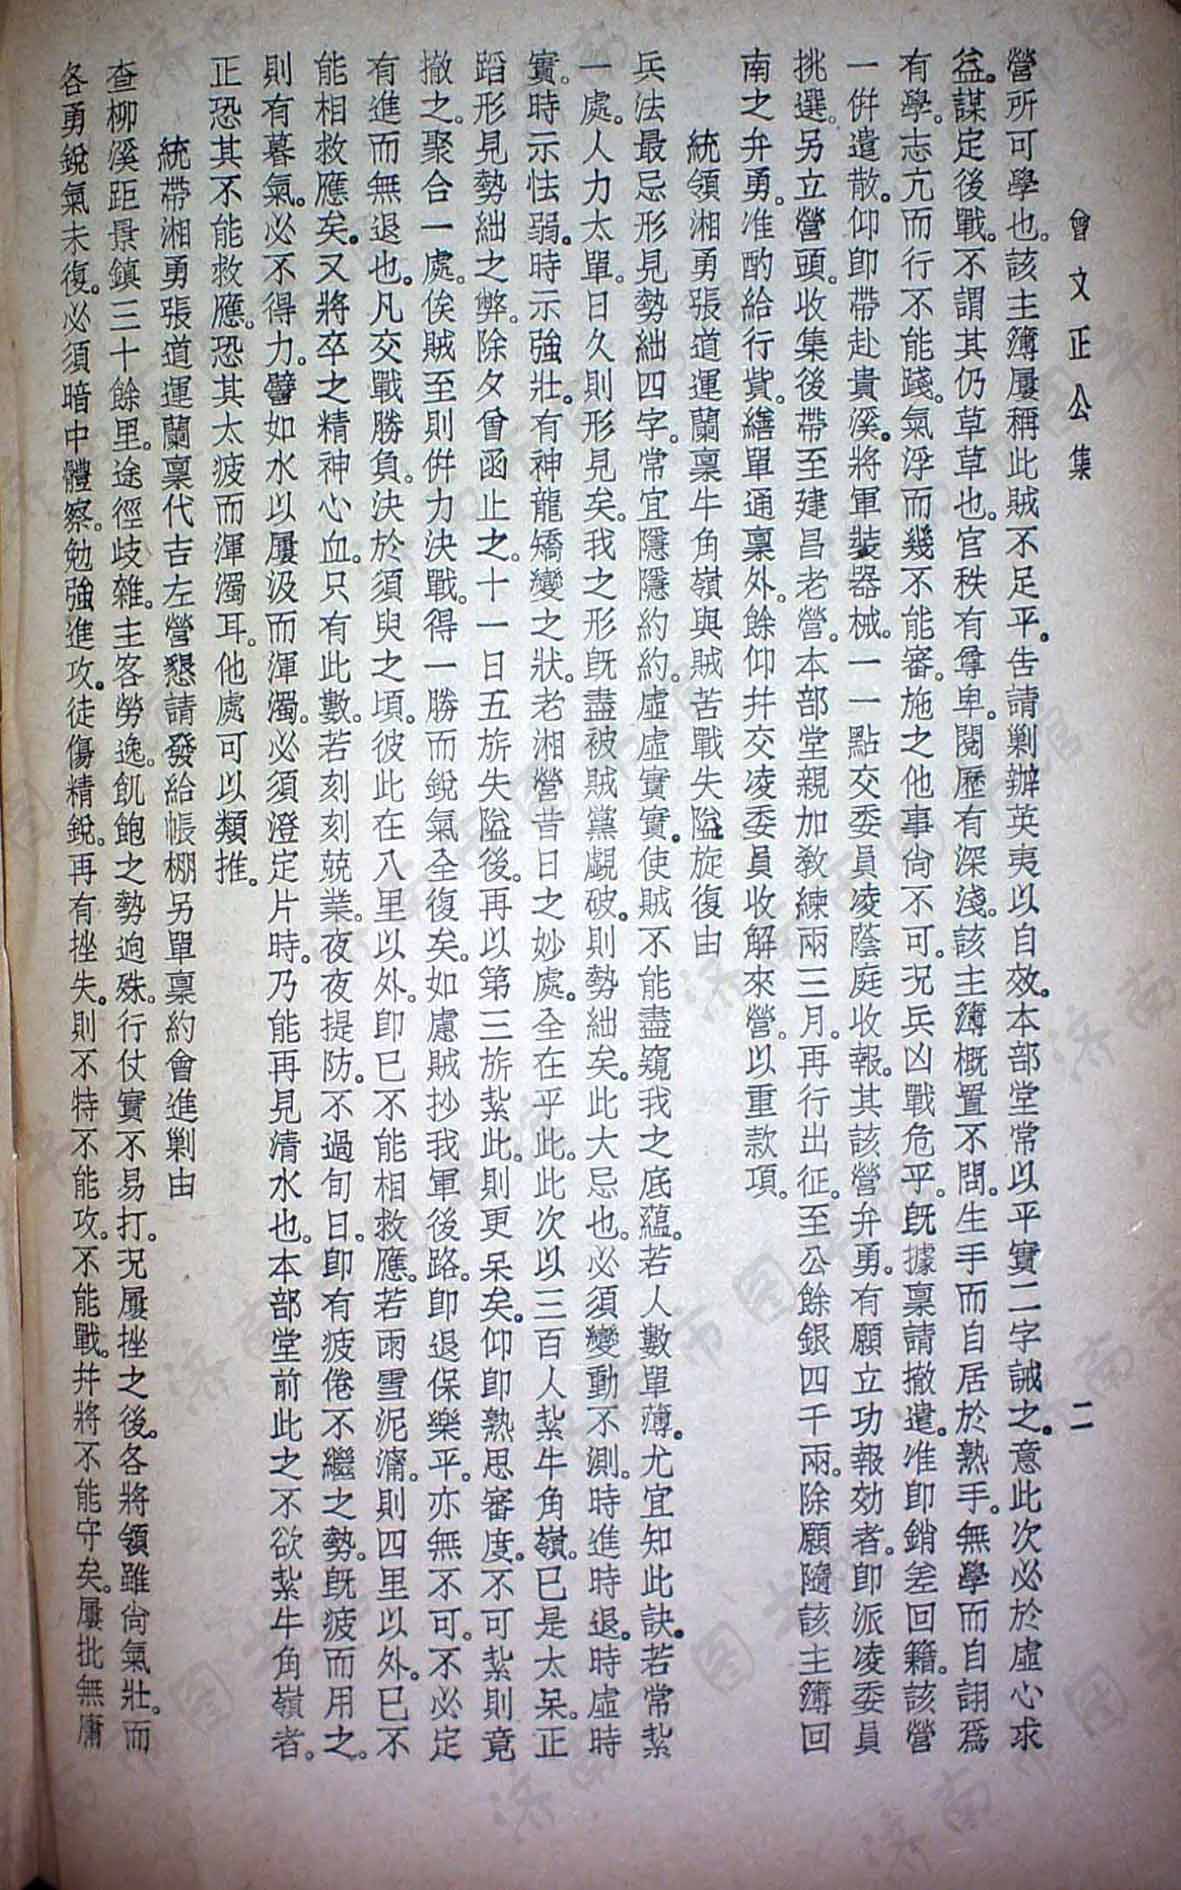 曾文正公集　二
營所可學也。該主簿屢稱此賊不足平。告請剿辦英夷以自效。本部堂常以平實二字誡之。意此次必於虛心求
益。謀定後戰。不謂其仍草草也。官秩有尊卑。閱歷有深淺。該主簿概置不問。生手而自居於熟手。無學而自詡爲
有學。志亢而行不能踐。氣浮而幾不能審。施之他事尙不可。況兵凶戰危乎。旣據稟請撤遣。准卽銷差回籍。該營
一併遣散。仰卽帶赴貴溪。將軍裝器械。一一點交委員凌蔭庭收報。其該營弁勇。有願立功報効者。卽派凌委員
挑選。另立營頭。收集後帶至建昌老營。本部堂親加敎練兩三月。再行出征。至公餘銀四千兩。除願隨該主簿回
南之弁勇。准酌給行貲。繕單通稟外。餘仰幷交凌委員收解來營。以重款項。
統領湘勇張道運蘭稟牛角嶺與賊苦戰失隘旋復由
兵法最忌形見勢絀四字。常宜隱隱約約。虛虛實實。使賊不能盡窺我之底蘊。若人數單薄。尤宜知此訣。若常紮
一處。人力太單。日久則形見矣。我之形旣盡被賊黨覷破。則勢絀矣。此大忌也。必須變動不測。時進時退。時虛時
實。時示怯弱。時示強壯。有神龍矯變之狀。老湘營昔日之妙處。全在乎此。此次以三百人紮牛角嶺。已是太呆。正
蹈形見勢絀之弊。除夕曾函止之。十一日五旂失隘後。再以第三旂紮此。則更呆矣。仰卽熟思審度。不可紮則竟
撤之。聚合一處。俟賊至則併力決戰。得一勝而銳氣全復矣。如慮賊抄我軍後路。卽退保樂平。亦無不可。不必定
有進而無退也。凡交戰勝負。決於須臾之頃。彼此在八里以外。卽已不能相救應。若雨雪泥濘。則四里以外。已不
能相救應矣。又將卒之精神心血。只有此數。若刻刻兢業。夜夜提防。不過旬日。卽有疲倦不繼之勢。旣疲而用之。
則有暮氣。必不得力。譬如水以屢汲而渾濁。必須澄定片時。乃能再見清水也。本部堂前此之不欲紮牛角嶺者。
正恐其不能救應。恐其太疲而渾濁耳。他處可以類推。
統帶湘勇張道運蘭稟代吉左營懇請發給帳棚另單稟約會進剿由
查柳溪距景鎮三十餘里。途徑歧雜。主客勞逸。飢飽之勢迥殊。行仗實不易打。況屢挫之後。各將領雖尙氣壯。而
各勇銳氣未復。必須暗中體察。勉強進攻。徒傷精銳。再有挫失。則不特不能攻。不能戰。幷將不能守矣。屢批無庸